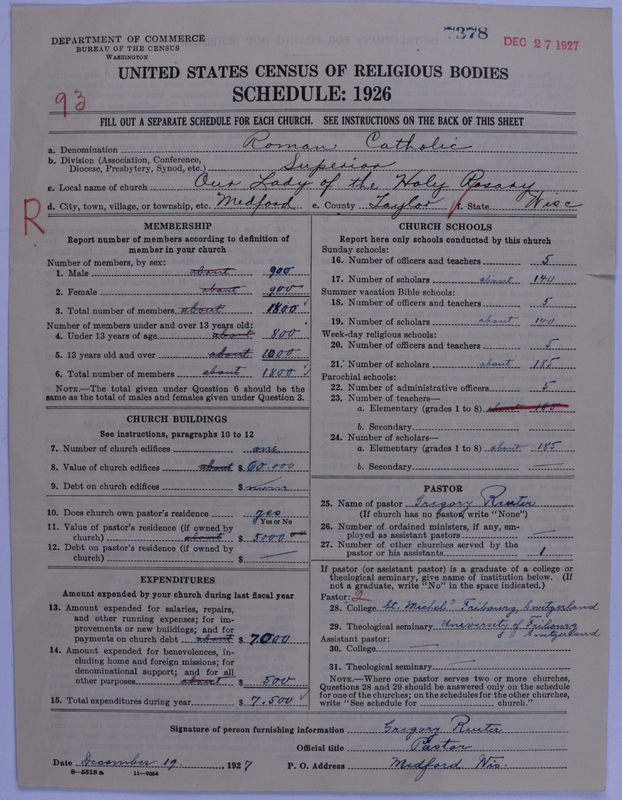 7378
DEC 27 1927
DEPARTMENT OF COMMERCE
BUREAU OF THE CENSUS
WASHINGTON
UNITED STATES CENSUS OF RELIGIOUS BODIES
SCHEDULE: 1926
93
FILL OUT A SEPARATE SCHEDULE FOR EACH CHURCH. SEE INSTRUCTIONS ON THE BACK OF THIS SHEET
a. Denomination Roman Catholic
b. Division (Association, Conference, Diocese, Presbytery, Synod, etc.) Superior
c. Local name of church Our Lady of the Holy Rosary
d. City, town, village, or township, etc. Medford e. County Taylor f. State Wisc
R
MEMBERSHIP
Report number of members according to definition of
member in your church
Number of members, by sex:
1. Male about 900
2. Female about 900
3. Total number of members about 1800
Number of members under and over 13 years old:
4. Under 13 years of age about 800
5. 13 years old and over about 1000
6. Total number of members about 1800
NOTE.—The total given under Question 6 should be the
same as the total of males and females given under Question 3.
CHURCH BUILDINGS
See instructions, paragraphs 10 to 12
7. Number of church edifices one
8. Value of church edifices about $ 60.000
9. Debt on church edifices $
10. Does church own pastor's residence? yes
Yes or No
11. Value of pastor's residence (if owned by
church) about $ 5000 00
12. Debt on pastor's residence (if owned by
church) $ —
EXPENDITURES
Amount expended by your church during last fiscal year
13. Amount expended for salaries, repairs,
and other running expenses; for im-
provements or new buildings; and for
payments on church debt about $ 7000
14. Amount expended for benevolences, in-
cluding home and foreign missions; for
denominational support; and for all
other purposes about $ 500
15. Total expenditures during year $ 7.500
CHURCH SCHOOLS
Report here only schools conducted by this church
Sunday schools:
16. Number of officers and teachers 5
17. Number of scholars about 140
Summer vacation Bible schools:
18. Number of officers and teachers 5
19. Number of scholars about 140
Week-day religious schools:
20. Number of officers and teachers 5
21. Number of scholars about 185
Parochial schools:
22. Number of administrative officers 5
23. Number of teachers—
a. Elementary (grades 1 to 8) about 185
b. Secondary
24. Number of scholars—
a. Elementary (grades 1 to 8) about 185
b. Secondary —
PASTOR
25. Name of pastor Gregory Reuter
(If church has no pastor, write "None")
26. Number of ordained ministers, if any, em-
ployed as assistant pastors —
27. Number of other churches served by the
pastor or his assistants 1
If pastor (or assistant pastor) is a graduate of a college or
theological seminary, give name of institution below. (If
not a graduate, write "No" in the space indicated.)
Pastor: 2
28. College St. Michel" Fribourg, Switzerland
29. Theological seminary University of Fribourg
Switzerland
Assistant pastor:
30. College —
31. Theological seminary —
NOTE.—Where one pastor serves two or more churches,
Questions 28 and 29 should be answered only on the schedule
for one of the churches; on the schedules for the other churches,
write "See schedule for church."
Signature of person furnishing information Gregory Reuter
Official title Pastor
Date December 19, 1927 P. O. Address Medford Wis.
8—5518 a 11—9064